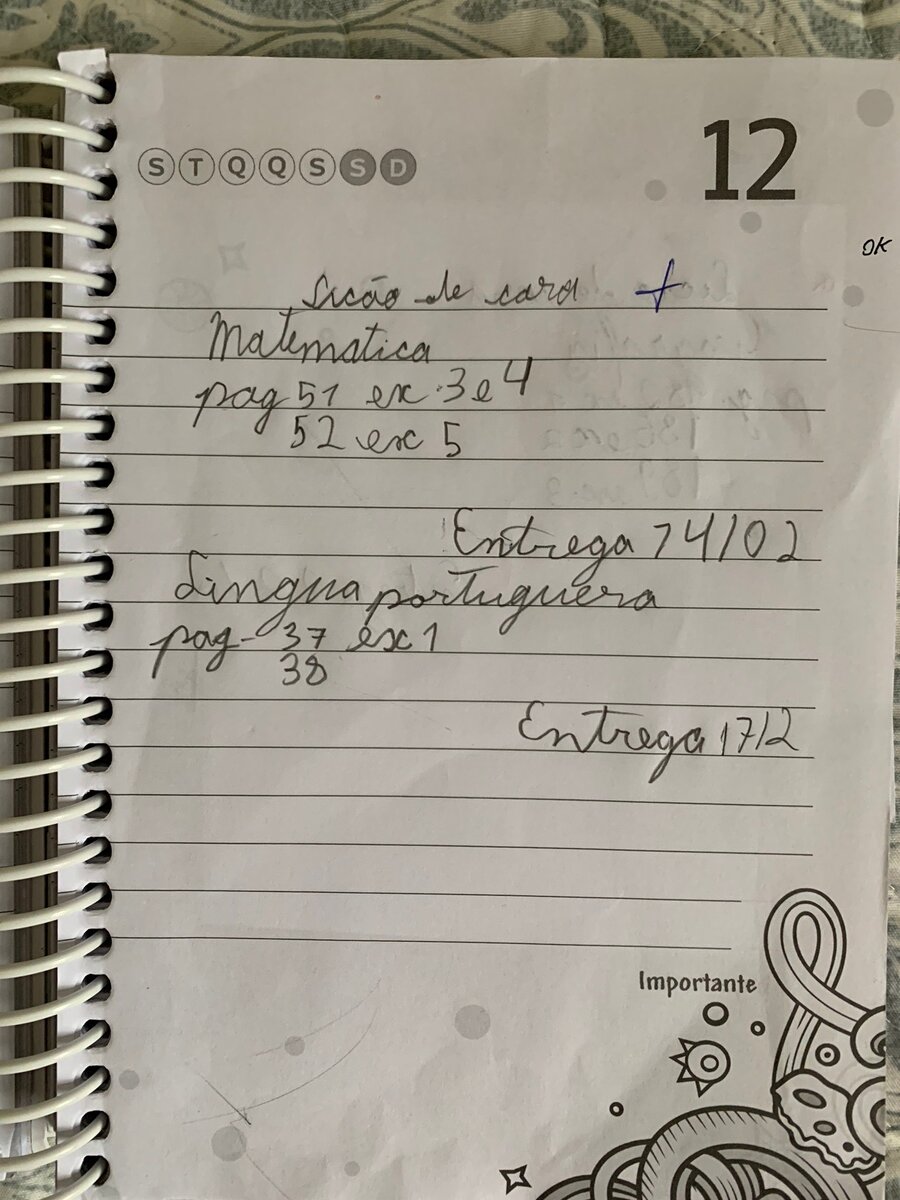 S T Q Q S S D
12
OK
Licão de cara +
Matematica
pag 51 ex. 3 e 4
52 exc 5
Entrega 14/02
Lingua portuguera
pag - 37 exc 1
38
Entrega 17/2
Importante